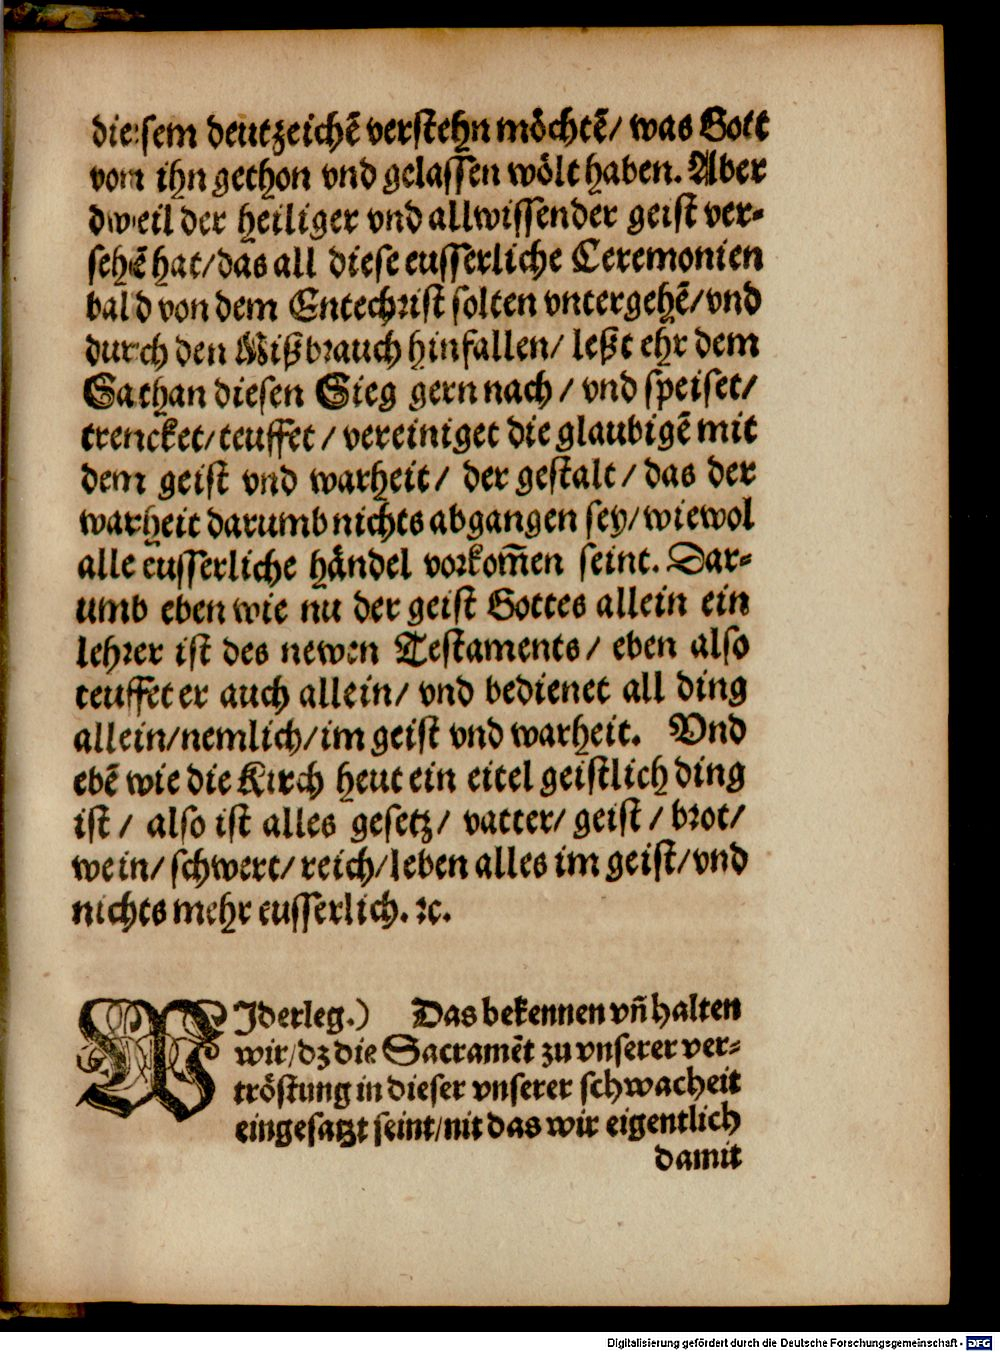 diesem deutzeichē verstehn möchtē/ was Gott
vom ihn gethon vnd gelassen wölt haben. Aber
dweil der heiliger vnd allwissender geist ver-
sehē hat/das all diese eusserliche Ceremonien
bald von dem Entechrist solten vntergehē/vnd
durch den Mißbrauch hinfallen/ leßt ehr dem
Sathan diesen Sieg gern nach / vnd speiset/
trencket/teuffet / vereiniget die glaubigē mit
dem geist vnd warheit/ der gestalt/ das der
warheit darumb nichts abgangen sey/wiewol
alle eusserliche händel vorkom̄en seint. Dar-
umb eben wie nu der geist Gottes allein ein
lehrer ist des newen Testaments/ eben also
teuffet er auch allein/ vnd bedienet all ding
allein/nemlich/im geist vnd warheit. Vnd
ebē wie die Kirch heut ein eitel geistlich ding
ist / also ist alles gesetz/ vatter/ geist / brot/
wein/ schwert/ reich/leben alles im geist/vnd
nichts mehr eusserlich. ꝛc.
WJderleg.) Das bekennen vn̄ halten
wir/dz die Sacramēt zu vnserer ver-
tröstung in dieser vnserer schwacheit
eingesatzt seint/nit das wir eigentlich
damit
Digitalisierung gefördert durch die Deutsche Forschungsgemeinschaft - DFG